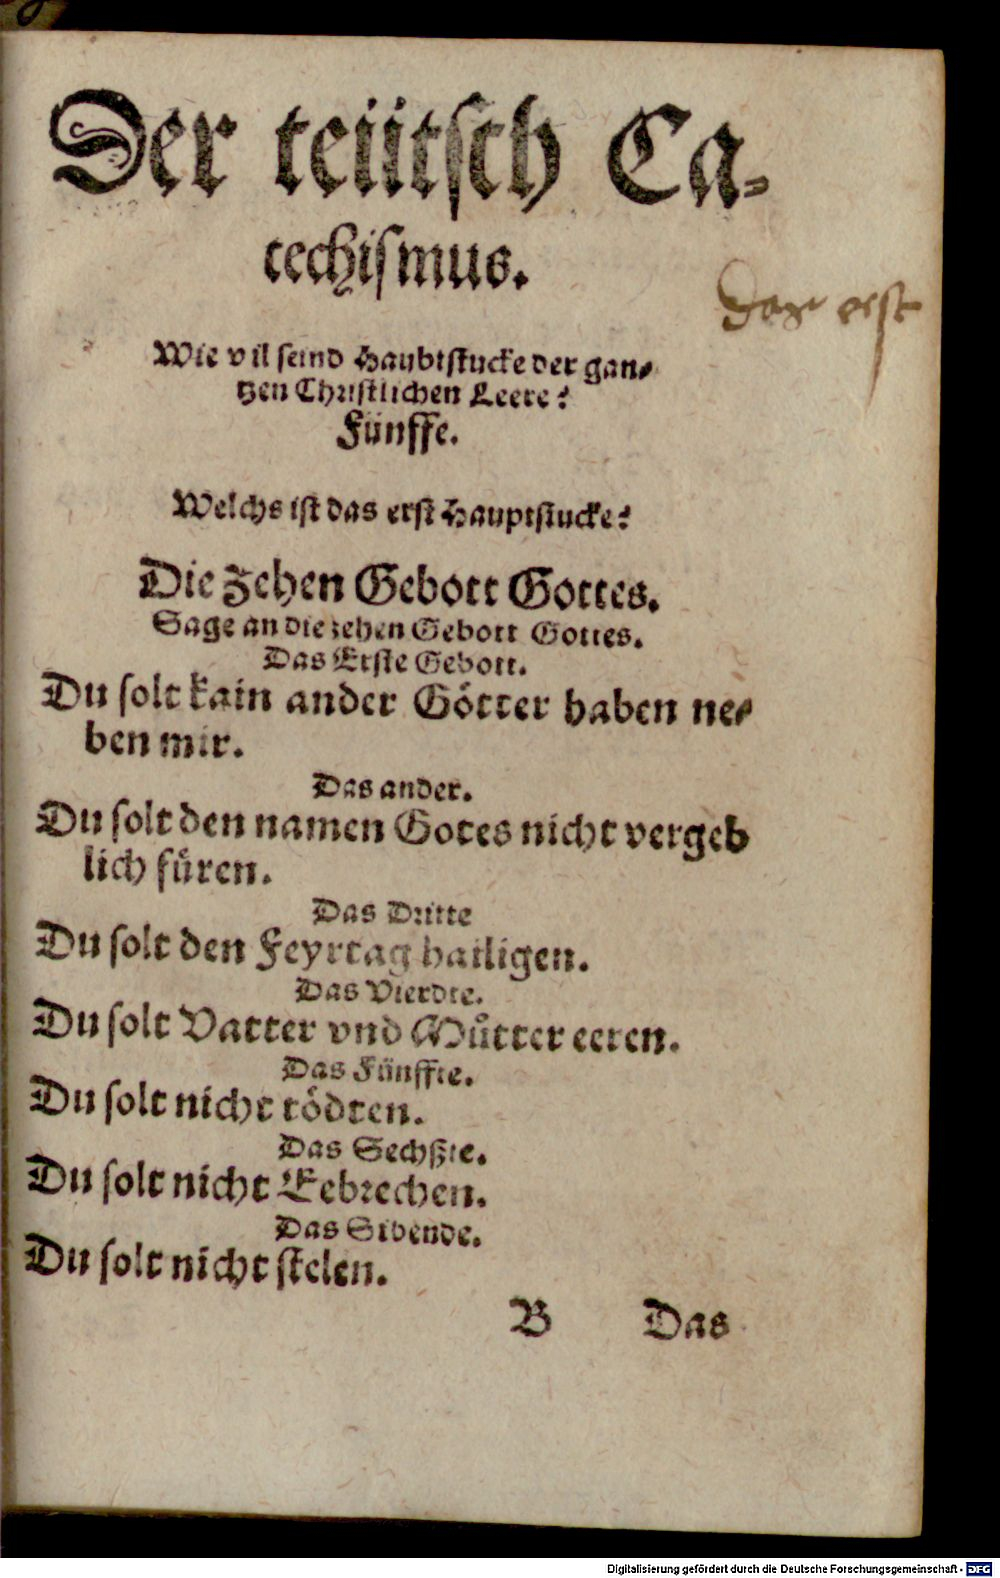 Der teütsch Ca-
techismus.
das erst
Wie vil seind Haubtstucke der gan-
tzen Christlichen Leere?
Fünffe.
Welchs ist das erst Hauptstucke?
Die zehen Gebott Gottes.
Sage an die zehen Gebott Gottes.
Das Erste Gebott.
Du solt kain ander Götter haben ne-
ben mir.
Das ander.
Du solt den namen Gotes nicht vergeb
lich füren.
Das Dritte
Du solt den Feyrtag hailigen.
Das Vierdte.
Du solt Vatter vnd Můtter eeren.
Das Fünffte.
Du solt nicht tödten.
Das Sechßte.
Du solt nicht Eebrechen.
Das Sibende.
Du solt nicht stelen.
B Das
Digitalisierung gefördert durch die Deutsche Forschungsgemeinschaft - DFG